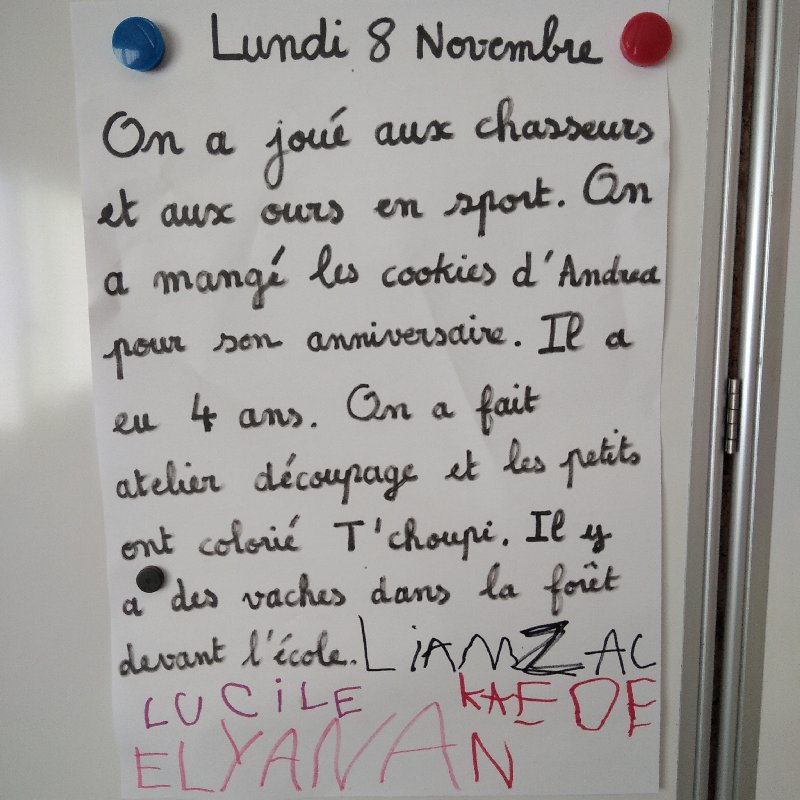 Lundi 8 Novembre
On a joué aux chasseurs
et aux ours en sport. On
a mangé les cookies d'Andrea
pour son anniversaire. Il a
eu 4 ans. On a fait
atelier découpage et les petits
ont colorié T'choupi. Il y
a des vaches dans la forêt
devant l'école. LiAM ZAC
LUCiLE KAEDE
ELYANAN